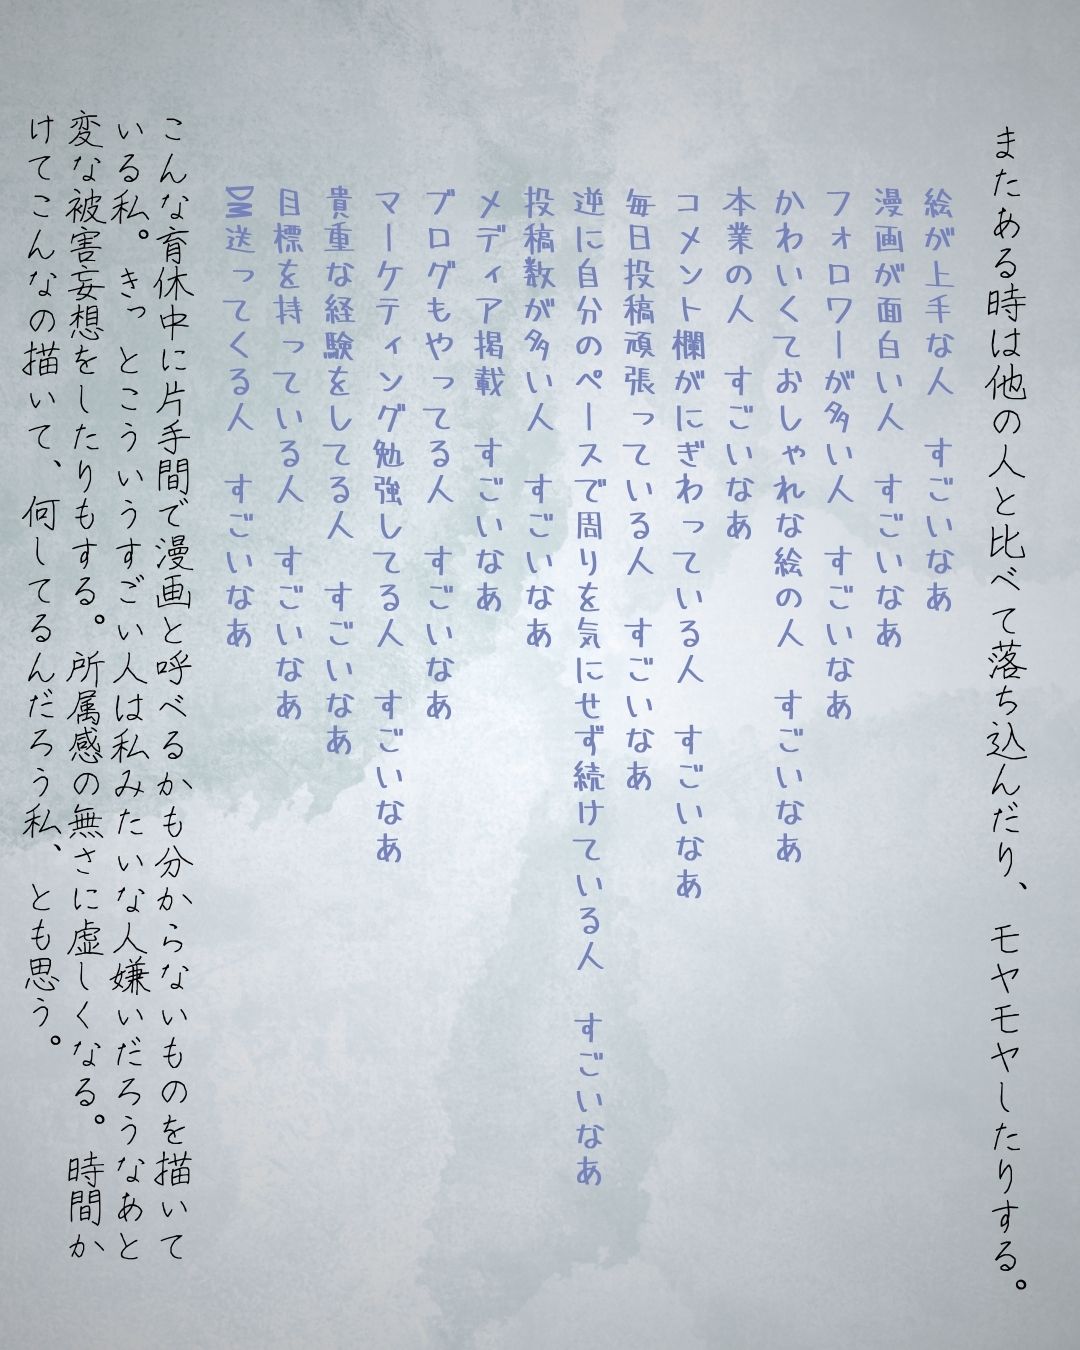 またある時は他の人と比べて落ち込んだり、モヤモヤしたりする。
絵が上手な人　すごいなあ
漫画が面白い人　すごいなあ
フォロワーが多い人　すごいなあ
かわいくておしゃれな絵の人　すごいなあ
本業の人　すごいなあ
コメント欄がにぎわっている人　すごいなあ
毎日投稿頑張っている人　すごいなあ
逆に自分のペースで周りを気にせず続けている人　すごいなあ
投稿数が多い人　すごいなあ
メディア掲載　すごいなあ
ブログもやってる人　すごいなあ
マーケティング勉強してる人　すごいなあ
貴重な経験をしてる人　すごいなあ
目標を持っている人　すごいなあ
DM送ってくる人　すごいなあ
こんな育休中に片手間で漫画と呼べるかも分からないものを描いて
いる私。きっとこういうすごい人は私みたいな人嫌いだろうなあと
変な被害妄想をしたりもする。所属感の無さに虚しくなる。時間か
けてこんなの描いて、何してるんだろう私、とも思う。